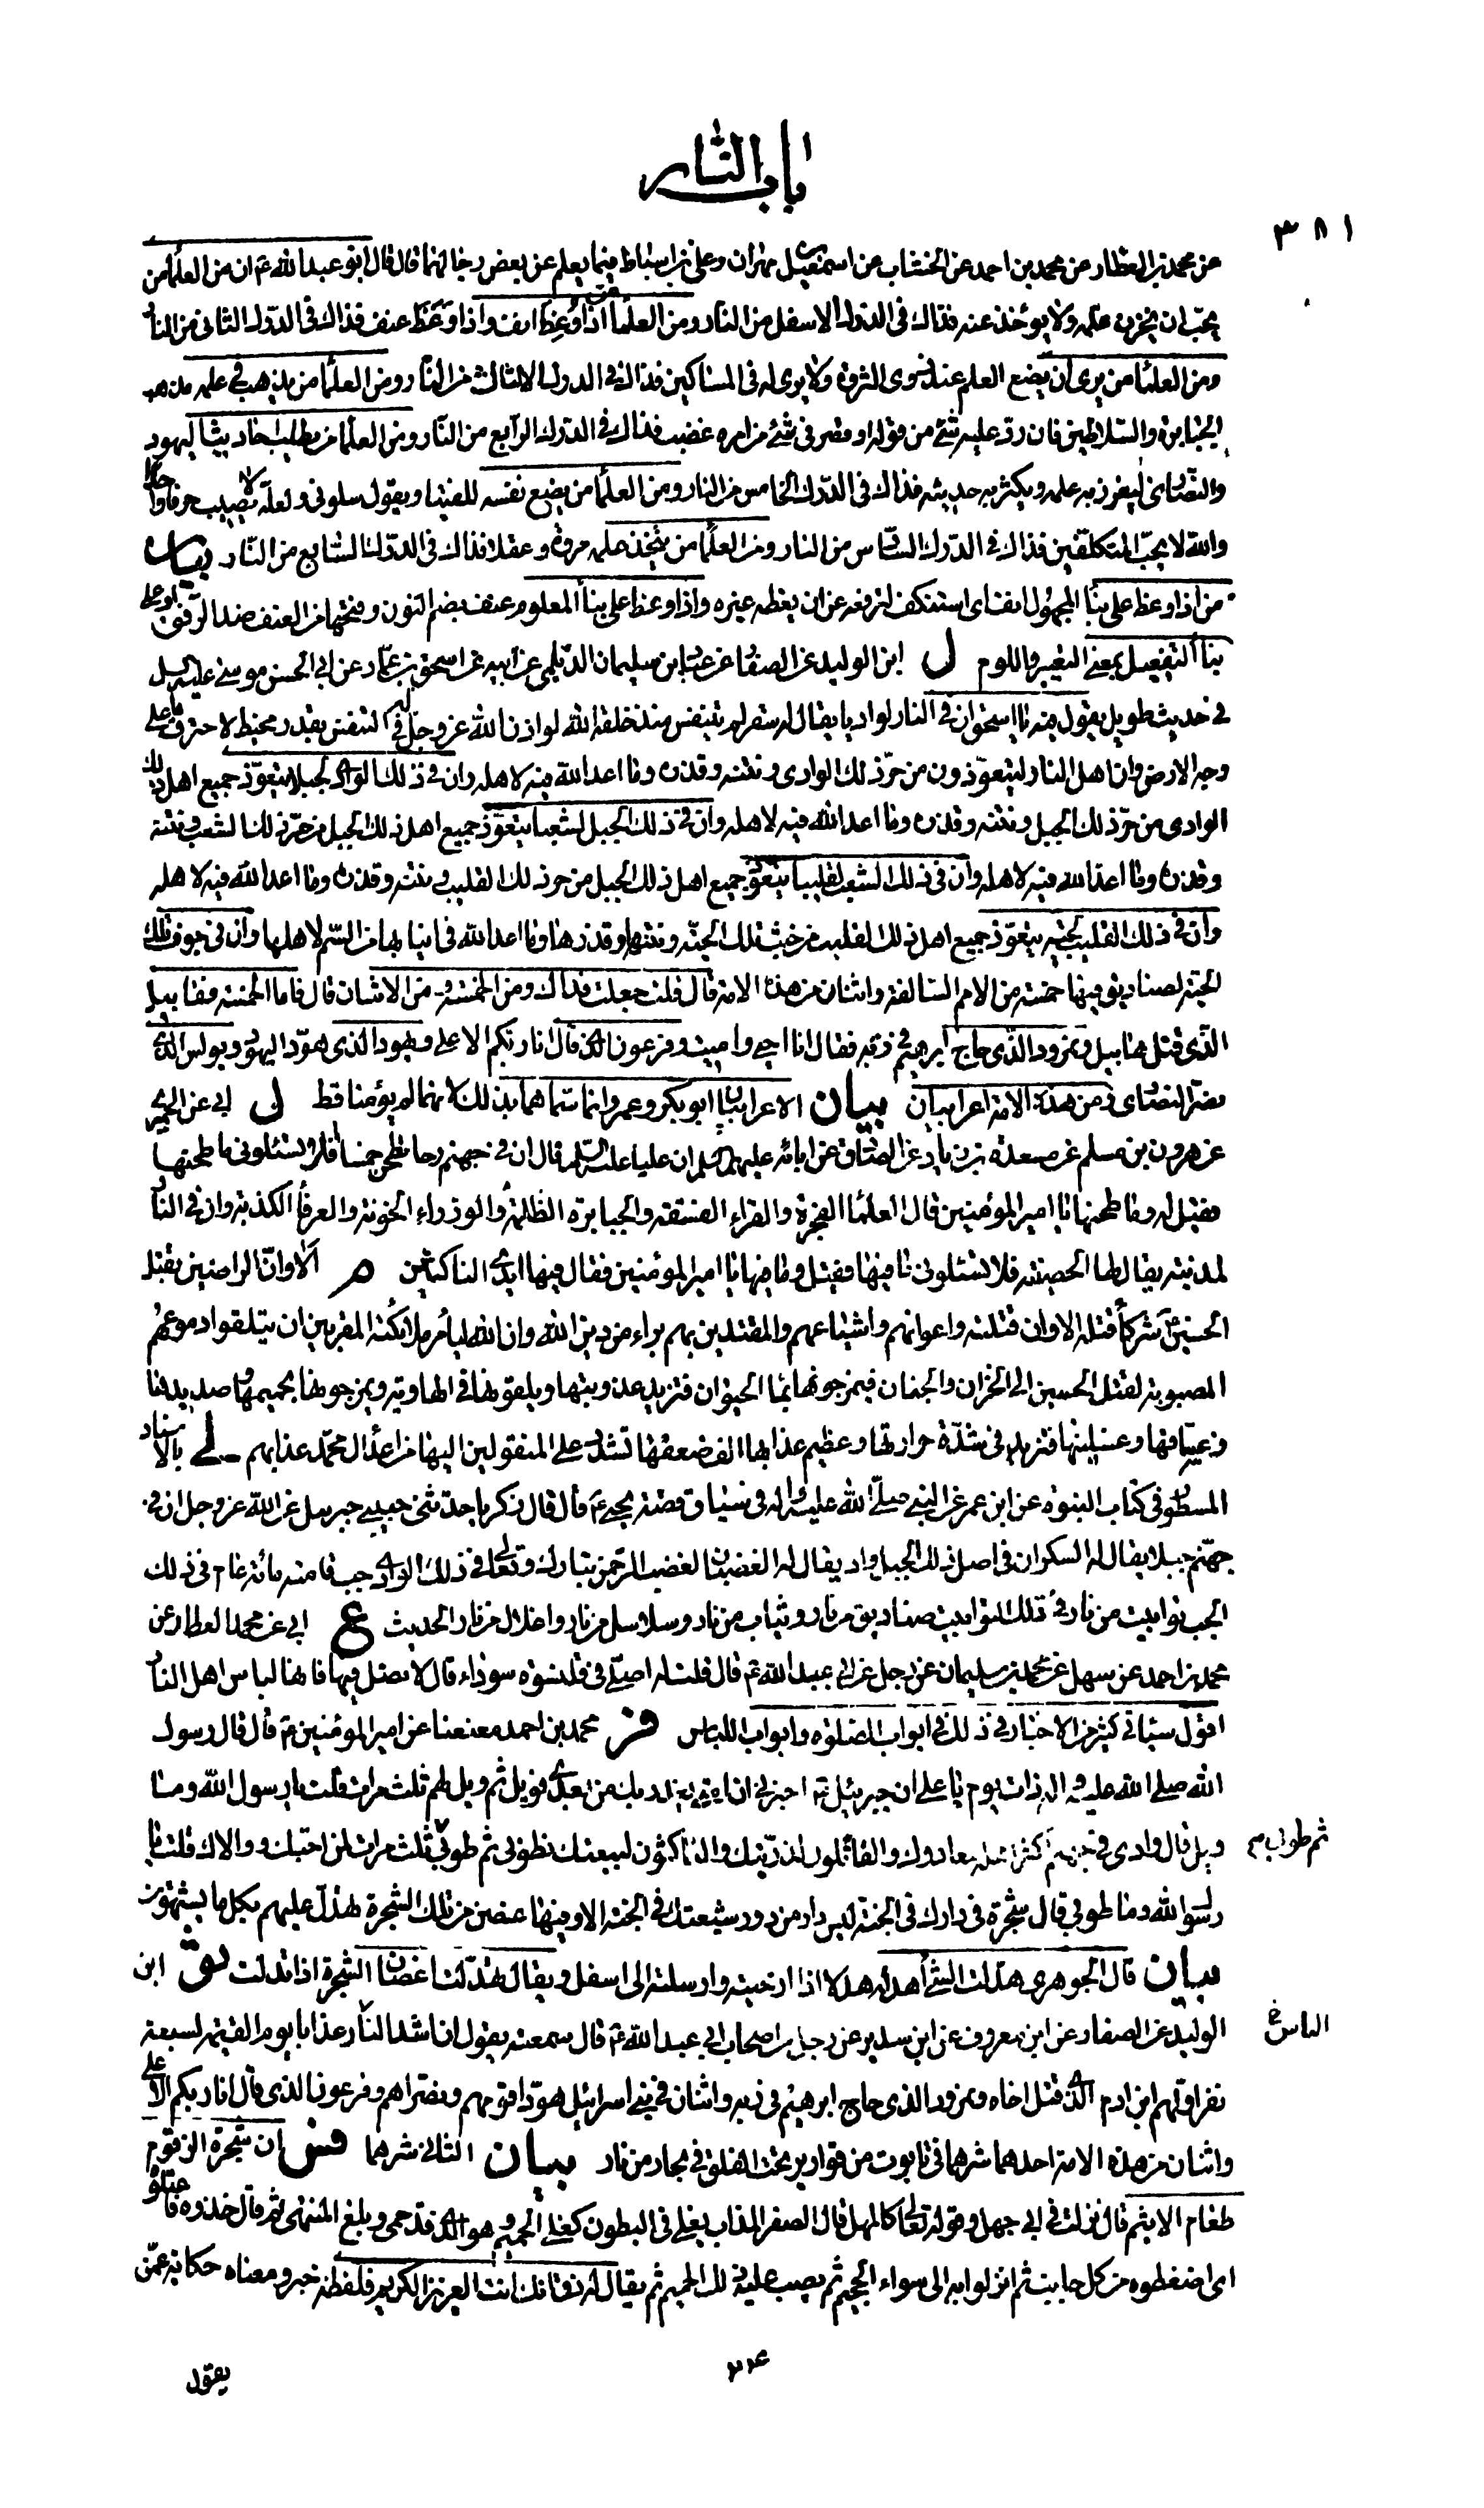 باب النار
٣٨١
عن محمد بن العطار عن محمد بن احمد عن الخشاب عن اسمعيل بن مهران وعلى بن اسباط فيما يعلم عن بعض رجالهما قال قال ابو عبد الله ع ان من العلماء من
يحب ان يخزن علمه ولا يؤخذ عنه فذاك فى الدرك الاسفل من النار ومن العلماء من اذا وُعِظَ انف واذا وَعَظَ عنف فذاك فى الدرك الثانى من النار
ومن العلماء من يرى ان يضع العلم عند ذوى الثروة ولا يرى له فى المساكين فذاك فى الدرك الثالث من النار ومن العلماء من يذهب فى علمه مذهب
الجبابرة والسلاطين فان رد عليه شئ من قوله او قصر فى شئ من امره غضب فذاك فى الدرك الرابع من النار ومن العلماء من يطلب احاديث اليهود
والنصارى ليغزر به علمه ويكثر به حديثه فذاك فى الدرك الخامس من النار ومن العلماء من يضع نفسه للفتيا ويقول سلونى ولعله لا يصيب حرفا واحدا
والله لا يحب المتكلفين فذاك فى الدرك السادس من النار ومن العلماء من يتخذ علمه مروة وعقلا فذاك فى الدرك السابع من النار بيان
من اذا وعظ على بناء المجهول انف اى استنكف لترفعه عن ان يعظه غيره واذا وعظ على بناء المعلوم عنف بضم النون وفتحها من العنف ضد الرفق او على
بناء التفعيل بمعنى التعيير واللوم ل ابن الوليد عن الصفار عن عباد بن سليمان الديلمى عن ابيه عن اسحق بن عمار عن ابى الحسن موسى عليه السل
فى حديث طويل يقول فيه يا اسحق ان فى النار لواديا يقال له سقر لم يتنفس منذ خلقه الله لو اذن الله عز وجل له فى التنفس بقدر مخيط لاحترق ما على
وجه الارض وان اهل النار ليتعوذون من حر ذلك الوادى ونتنه وقذره وما اعد الله فيه لاهله وان فى ذلك الوادى لجبلا يتعوذ جميع اهل ذلك
الوادى من حر ذلك الجبل ونتنه وقذره وما اعد الله فيه لاهله وان فى ذلك الجبل لشعبا يتعوذ جميع اهل ذلك الجبل من حر ذلك الشعب ونتنه
وقذره وما اعد الله فيه لاهله وان فى ذلك الشعب لقليبا يتعوذ جميع اهل ذلك الجبل من حر ذلك القليب ونتنه وقذره وما اعد الله فيه لاهله
وان فى ذلك القليب لحية يتعوذ جميع اهل ذلك القليب من خبث تلك الحية ونتنها وقذرها وما اعد الله فى انيابها من السم لاهلها وان فى جوف تلك
الحية لصناديق فيها خمسة من الامم السالفة واثنان من هذه الامة قال قلت جعلت فداك ومن الخمسة ومن الاثنان قال فاما الخمسة فقابيل
الذى قتل هابيل ونمرود الذى حاج ابرهيم فى ربه فقال انا احيى واميت وفرعون الذى قال انا ربكم الاعلى ويهود الذى هود اليهود وبولس الذى
نصر النصارى ومن هذه الامة اعرابيان بيان الاعرابيان ابو بكر وعمر وانما سماهما بذلك لانهما لم يؤمنا قط ل ابى عن الحميرى
عن هرون بن مسلم عن مسعدة بن زياد عن الصادق عن ابائه عليهم السلم ان عليا عليه السلم قال ان فى جهنم رحا تطحن خمسا افلا تسئلونى ما طحنها
فقيل له وما طحنها يا امير المؤمنين قال العلماء الفجرة والقراء الفسقة والجبابرة الظلمة والوزراء الخونة والعرفاء الكذبة وان فى النار
لمدينة يقال لها الحصينة فلا تسئلونى ما فيها فقيل وما فيها يا امير المؤمنين فقال فيها ايدى الناكثين م الا وان الراضين بقتل
الحسين ع شركاء قتله الا وان قتلته واعوانهم واشياعهم والمقتدين بهم براء من دين الله وان الله ليأمر ملائكته المقربين ان يتلقوا دموعهم
المصبوبة لقتل الحسين الى الخزان والجنان فيمزجونها بماء الحيوان فتزيد عذوبتها ويلقونها فى الهاوية ويمزجونها بحميمها وصديدها
وغساقها وغسلينها فتزيد فى شدة حرارتها وعظيم عذابها الف ضعفها تشدد على المنقولين اليها من اعداء آل محمد عذابهم لى بالاسناد
المسطور فى كتاب النبوة عن ابن عمر عن النبى صلى الله عليه واله فى سياق قصة يحيى ع قال قال زكريا حدثنى حبيبى جبرئيل عن الله عز وجل ان فى
جهنم جبلا يقال له السكران فى اصل ذلك الجبل واد يقال له الغضبان لغضب الرحمن تبارك وتعالى فى ذلك الوادى جب قامته مائة عام فى ذلك
الجب توابيت من نار فى تلك التوابيت صناديق من نار وثياب من نار وسلاسل من نار واغلال من نار الحديث ع ابى عن محمد العطار عن
محمد بن احمد عن سهل عن محمد بن سليمان عن رجل عن ابى عبد الله ع قال قلت له اصلى فى قلنسوة سوداء قال لا تصل فيها فانها لباس اهل النار
اقول سيأتى كثير من الاخبار فى ذلك فى ابواب الصلوة وابواب اللباس فر محمد بن احمد معنعنا عن امير المؤمنين ع قال قال رسول
الله صلى الله عليه واله ذات يوم يا على ان جبرئيل ع اخبرنى ان امتى تغدر بك من بعدى فويل ثم ويل لهم ثلث مرات قلت يا رسول الله وما
ويل قال وادى فى جهنم اكثر اهله معادوك والقاتلون لذريتك والناكثون لبيعتك فطوبى ثم طوبى ثلث مرات لمن احبك ووالاك قلت يا
ثم طوبى
رسول الله وما طوبى قال شجرة فى دارك فى الجنة ليس دار من دور شيعتك فى الجنة الا وفيها غصن من تلك الشجرة تهدل عليهم بكل ما يشتهون
بيان قال الجوهرى هدلت الشئ اهدله هدلا اذا ارخيته وارسلته الى اسفل ويقال تهدلت اغصان الشجرة اذا تدلت ثو ابن
الوليد عن الصفار عن ابن معروف عن ابن سدير عن رجل من اصحاب ابى عبد الله ع قال سمعته يقول ان اشد النار عذابا يوم القيمة لسبعة
الناس خ
نفر اولهم ابن ادم الذى قتل اخاه ونمرود الذى حاج ابرهيم فى ربه واثنان فى بنى اسرائيل هودا قومهم ونصراهم وفرعون الذى قال انا ربكم الاعلى
واثنان من هذه الامة احدهما شرهما فى تابوت من قوارير تحت الفلق فى بحار من نار بيان الثانى شرهما فس ان شجرة الزقوم
طعام الاثيم قال نزلت فى ابى جهل وقوله تعالى كالمهل قال الصفر المذاب يغلى فى البطون كغلى الحميم وهو الذى قد حمى وبلغ المنتهى ثم قال خذوه فاعتلوه
اى اضغطوه من كل جانب ثم انزلوا به الى سواء الجحيم ثم يصب عليه ذلك الحميم ثم يقال له ذق انك انت العزيز الكريم فلفظه خبر ومعناه حكاية عمن
يقول